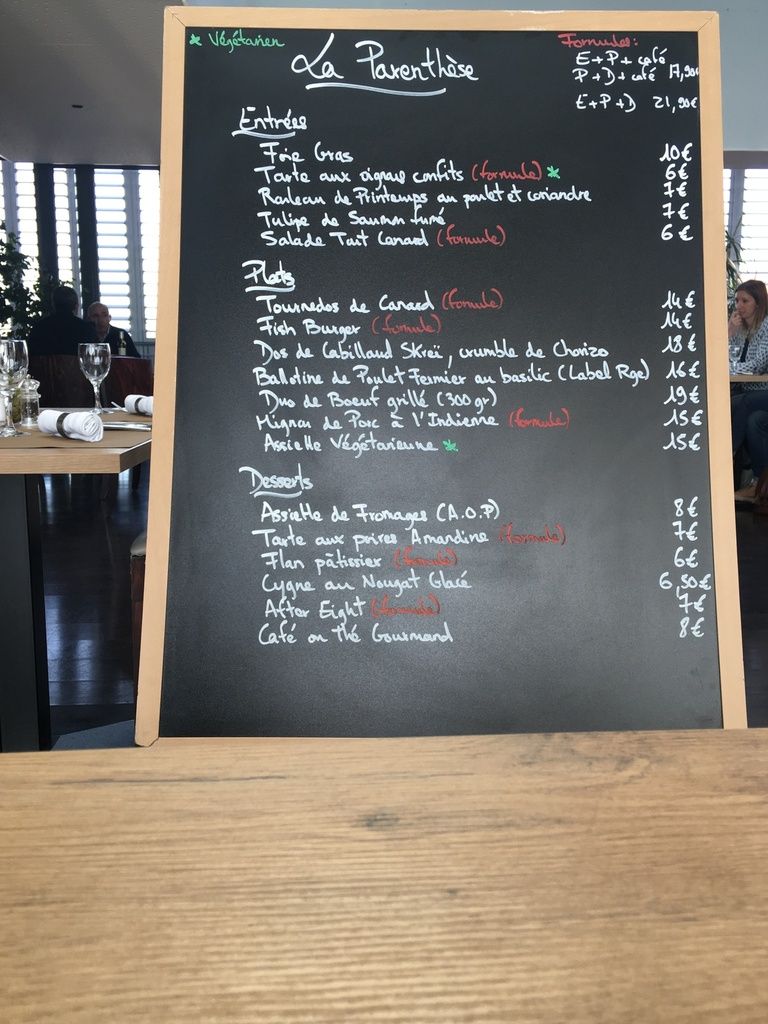 * Végétarien
La Parenthèse
Formules:
E+P+café
P+D+café 17,90€
E+P+D 21,90€
Entrées
Foie Gras 10€
Tarte aux oignons confits (formule) * 6€
Rouleau de Printemps au poulet et coriandre 7€
Tulipe de Saumon fumé 7€
Salade Tout Canard (formule) 6€
Plats
Tournedos de Canard (formule) 14€
Fish Burger (formule) 14€
Dos de Cabillaud Skreï, crumble de Chorizo 18€
Ballotine de Poulet Fermier au basilic (Label Rge) 16€
Duo de Boeuf grillé (300gr) 19€
Mignon de Porc à l'Indienne (formule) 15€
Assiette Végétarienne * 15€
Desserts
Assiette de Fromages (A.O.P) 8€
Tarte aux poires Amandine (formule) 7€
Flan pâtissier (formule) 6€
Cygne au Nougat Glacé 6,50€
After Eight (formule) 7€
Café ou Thé Gourmand 8€